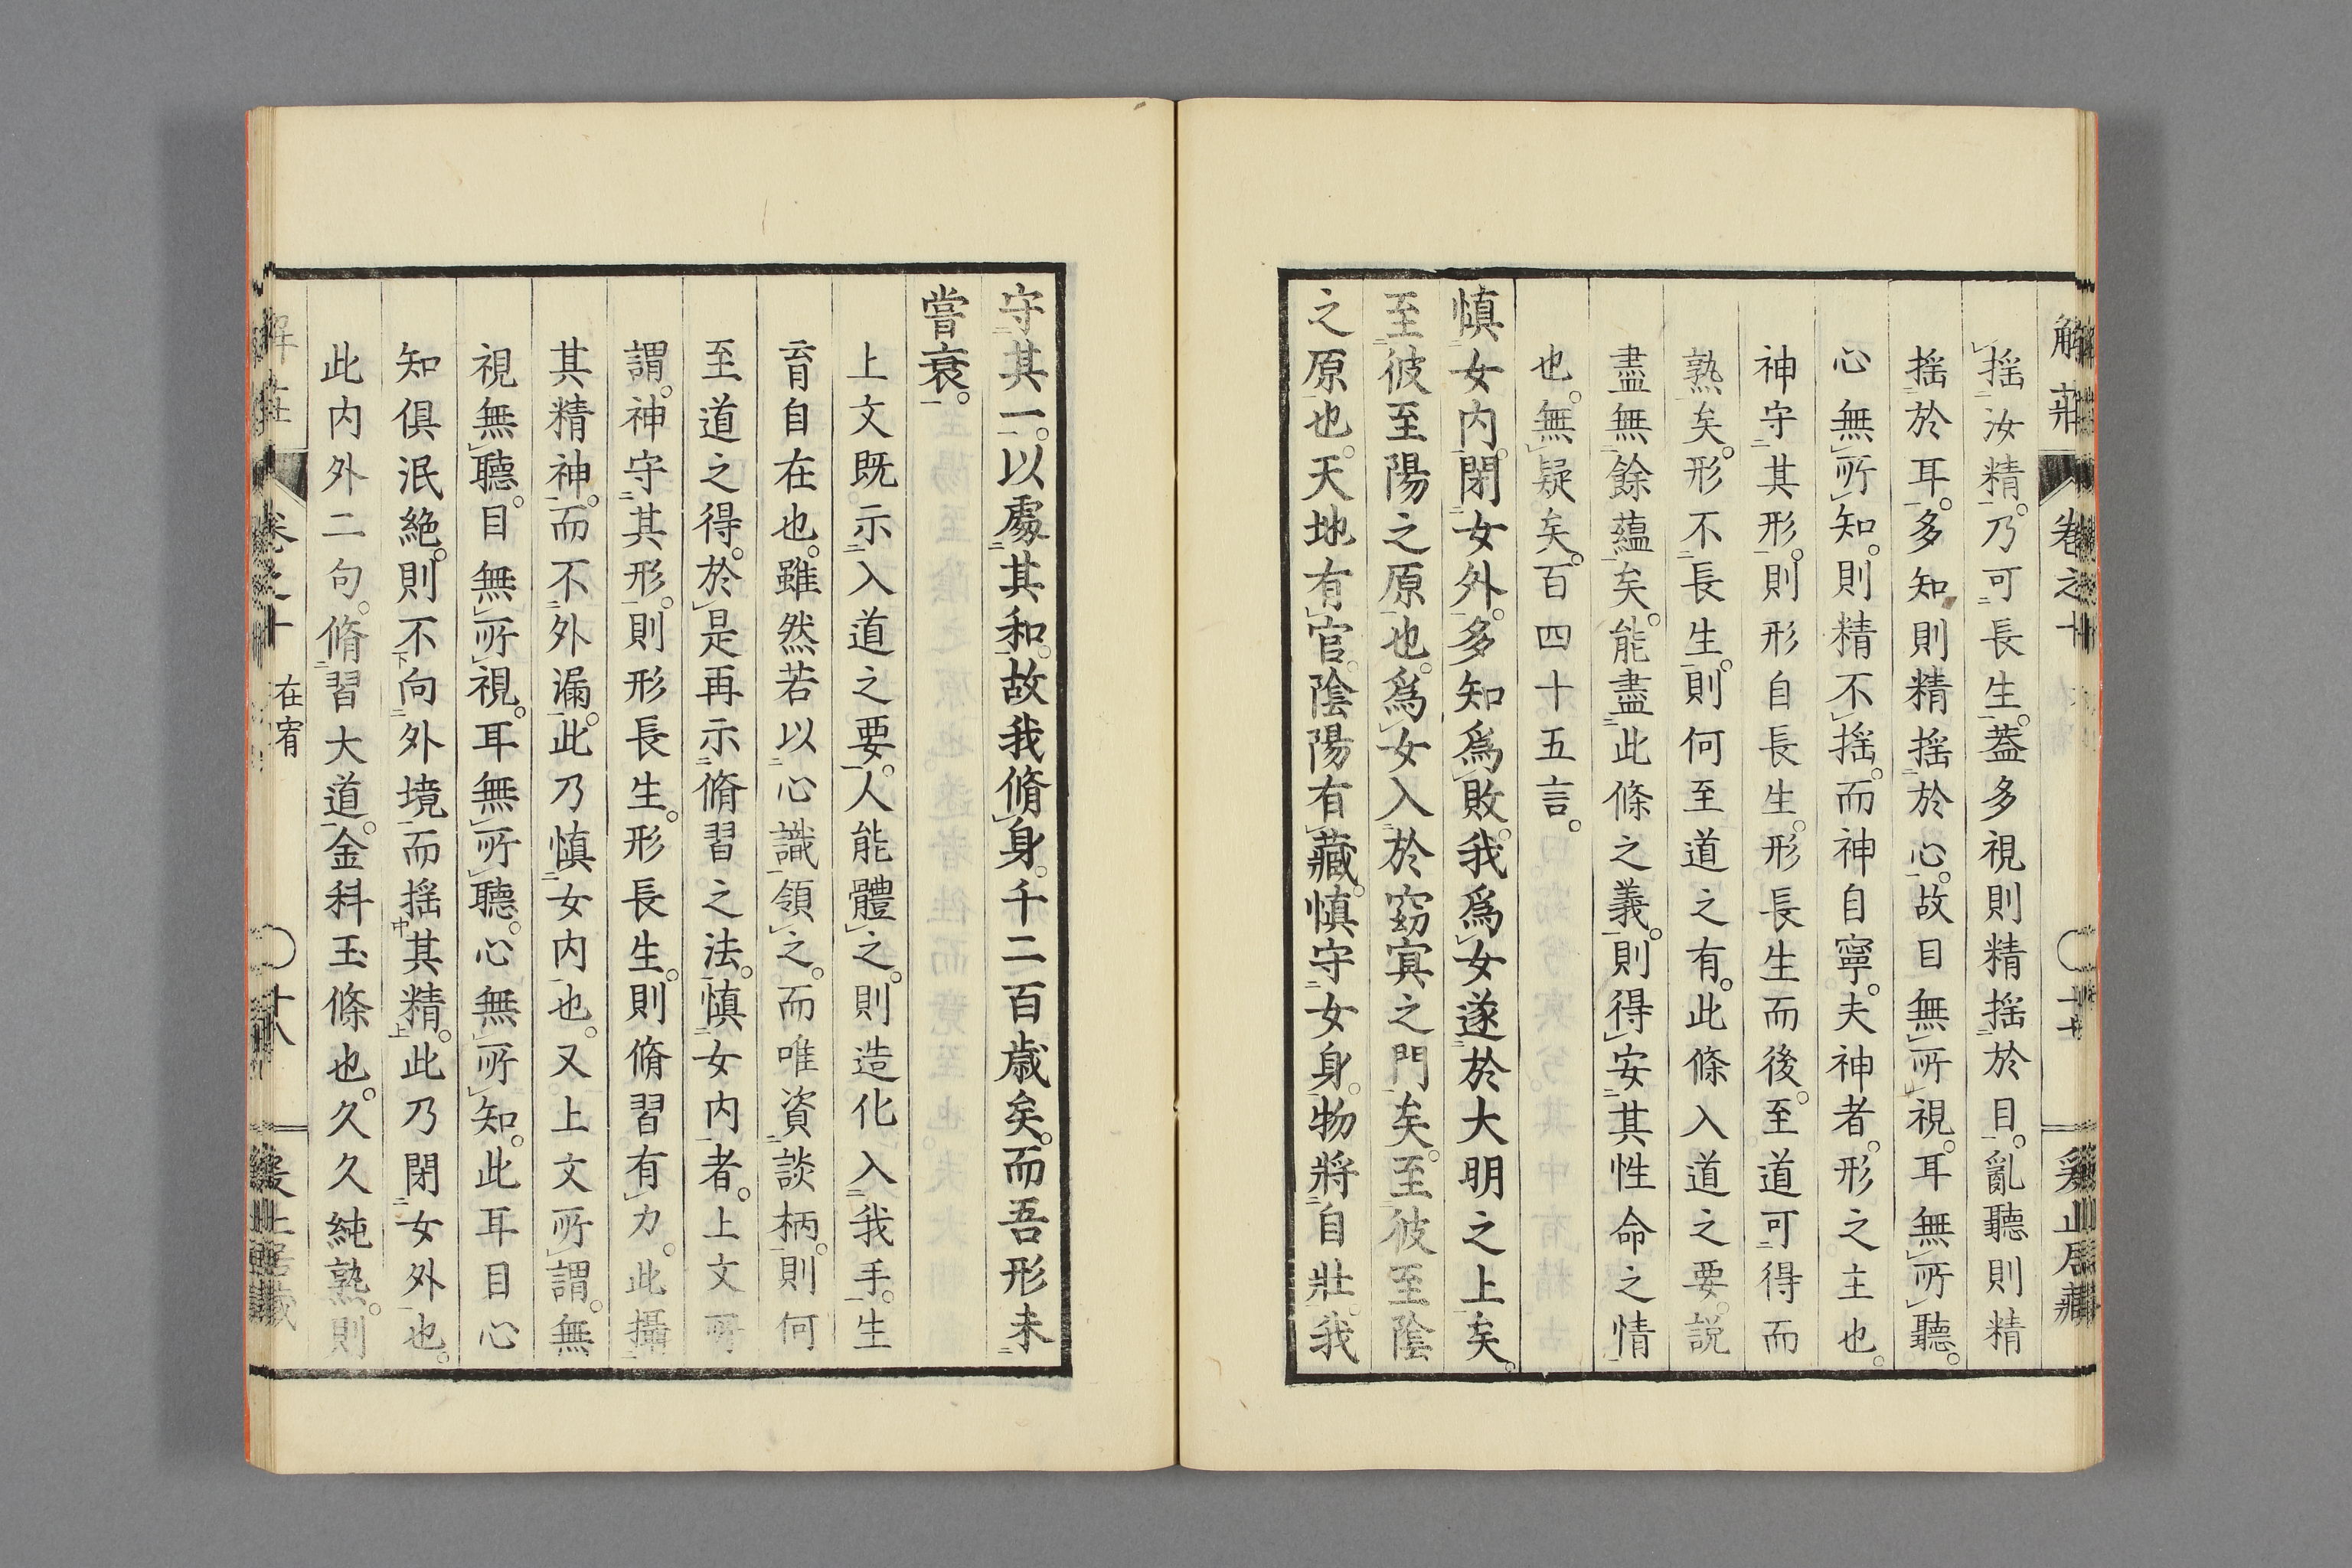 解莊 卷之十
揺汝精。乃可長生。蓋多視則精揺於目。亂聽則精
揺於耳。多知則精揺於心。故目無所視。耳無所聽。
心無所知。則精不揺。而神自寧。夫神者。形之主也。
神守其形。則形自長生。形長生而後。至道可得而
熟矣。形不長生。則何至道之有。此條入道之要。説
盡無餘蘊矣。能盡此條之義。則得安其性命之情
也。無疑矣。百四十五言。
慎女内。閉女外。多知爲敗。我爲女遂於大明之上矣。
至彼至陽之原也。爲女入於窈冥之門矣。至彼至陰
之原也。天地有官。陰陽有藏。慎守女身。物將自壯。我
守其一。以處其和。故我脩身。千二百歳矣。而吾形未
嘗衰。
上文既示入道之要。人能體之。則造化入我手。生
育自在也。雖然若以心識領之。而唯資談柄。則何
至道之得。於是再示脩習之法。慎女内者。上文所
謂。神守其形。則形長生。形長生。則脩習有力。此攝
其精神。而不外漏。此乃慎女内也。又上文所謂。無
視無聽。目無所視。耳無所聽。心無所知。此耳目心
知倶泯絶。則不向外境而揺其精。此乃閉女外也。
此内外二句。脩習大道。金科玉條也。久久純熟。則
解莊 卷之十 在宥 十八